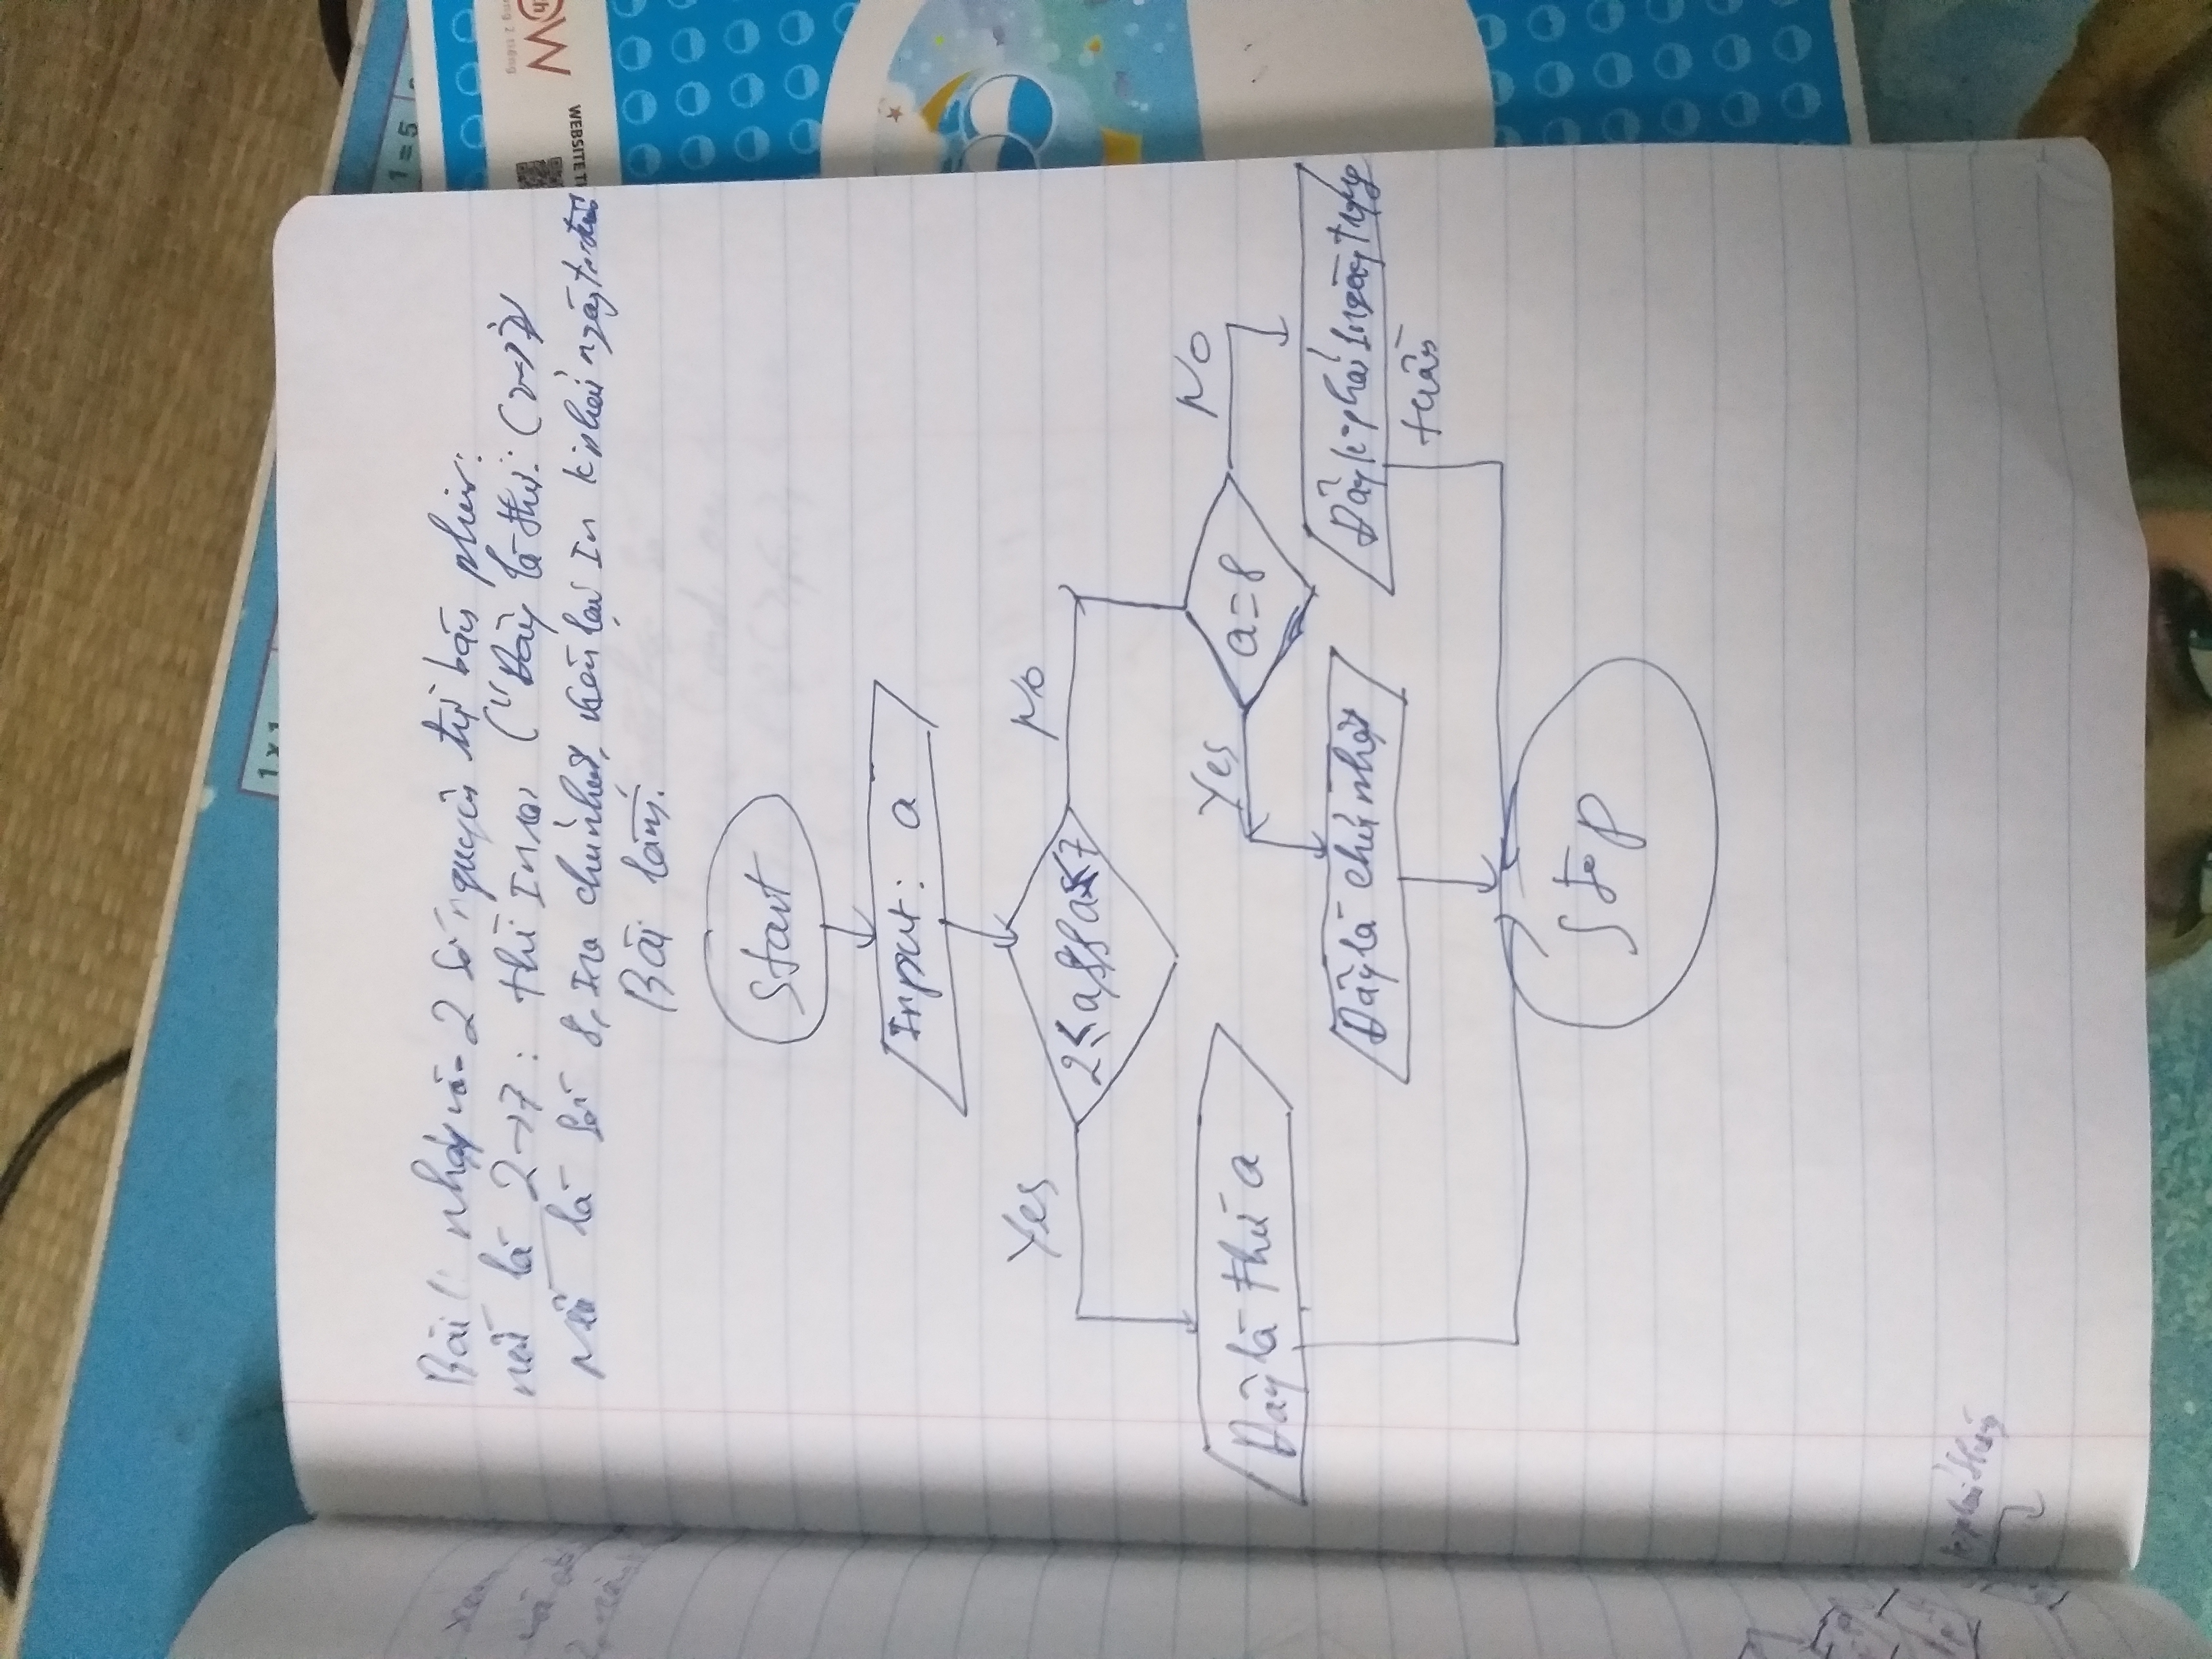 Bài 1: nhập và 2 số nguyên từ bàn phím.
nếu là 2→7: thì In ra ("Đây là thứ: (2→7)
Nếu là số 8, In ra chủ nhật, còn lại In k phải ngày trong tuần
Bài làm:
Start
Input: a
2≤a&&a≤7
Yes
No
Đây là thứ a
a=8
Yes
No
Đây là chủ nhật
Đây k phải ngày trong
tuần
Stop
WEBSITE T
W
ng 2 tiếng
1 = 5
1 x 1